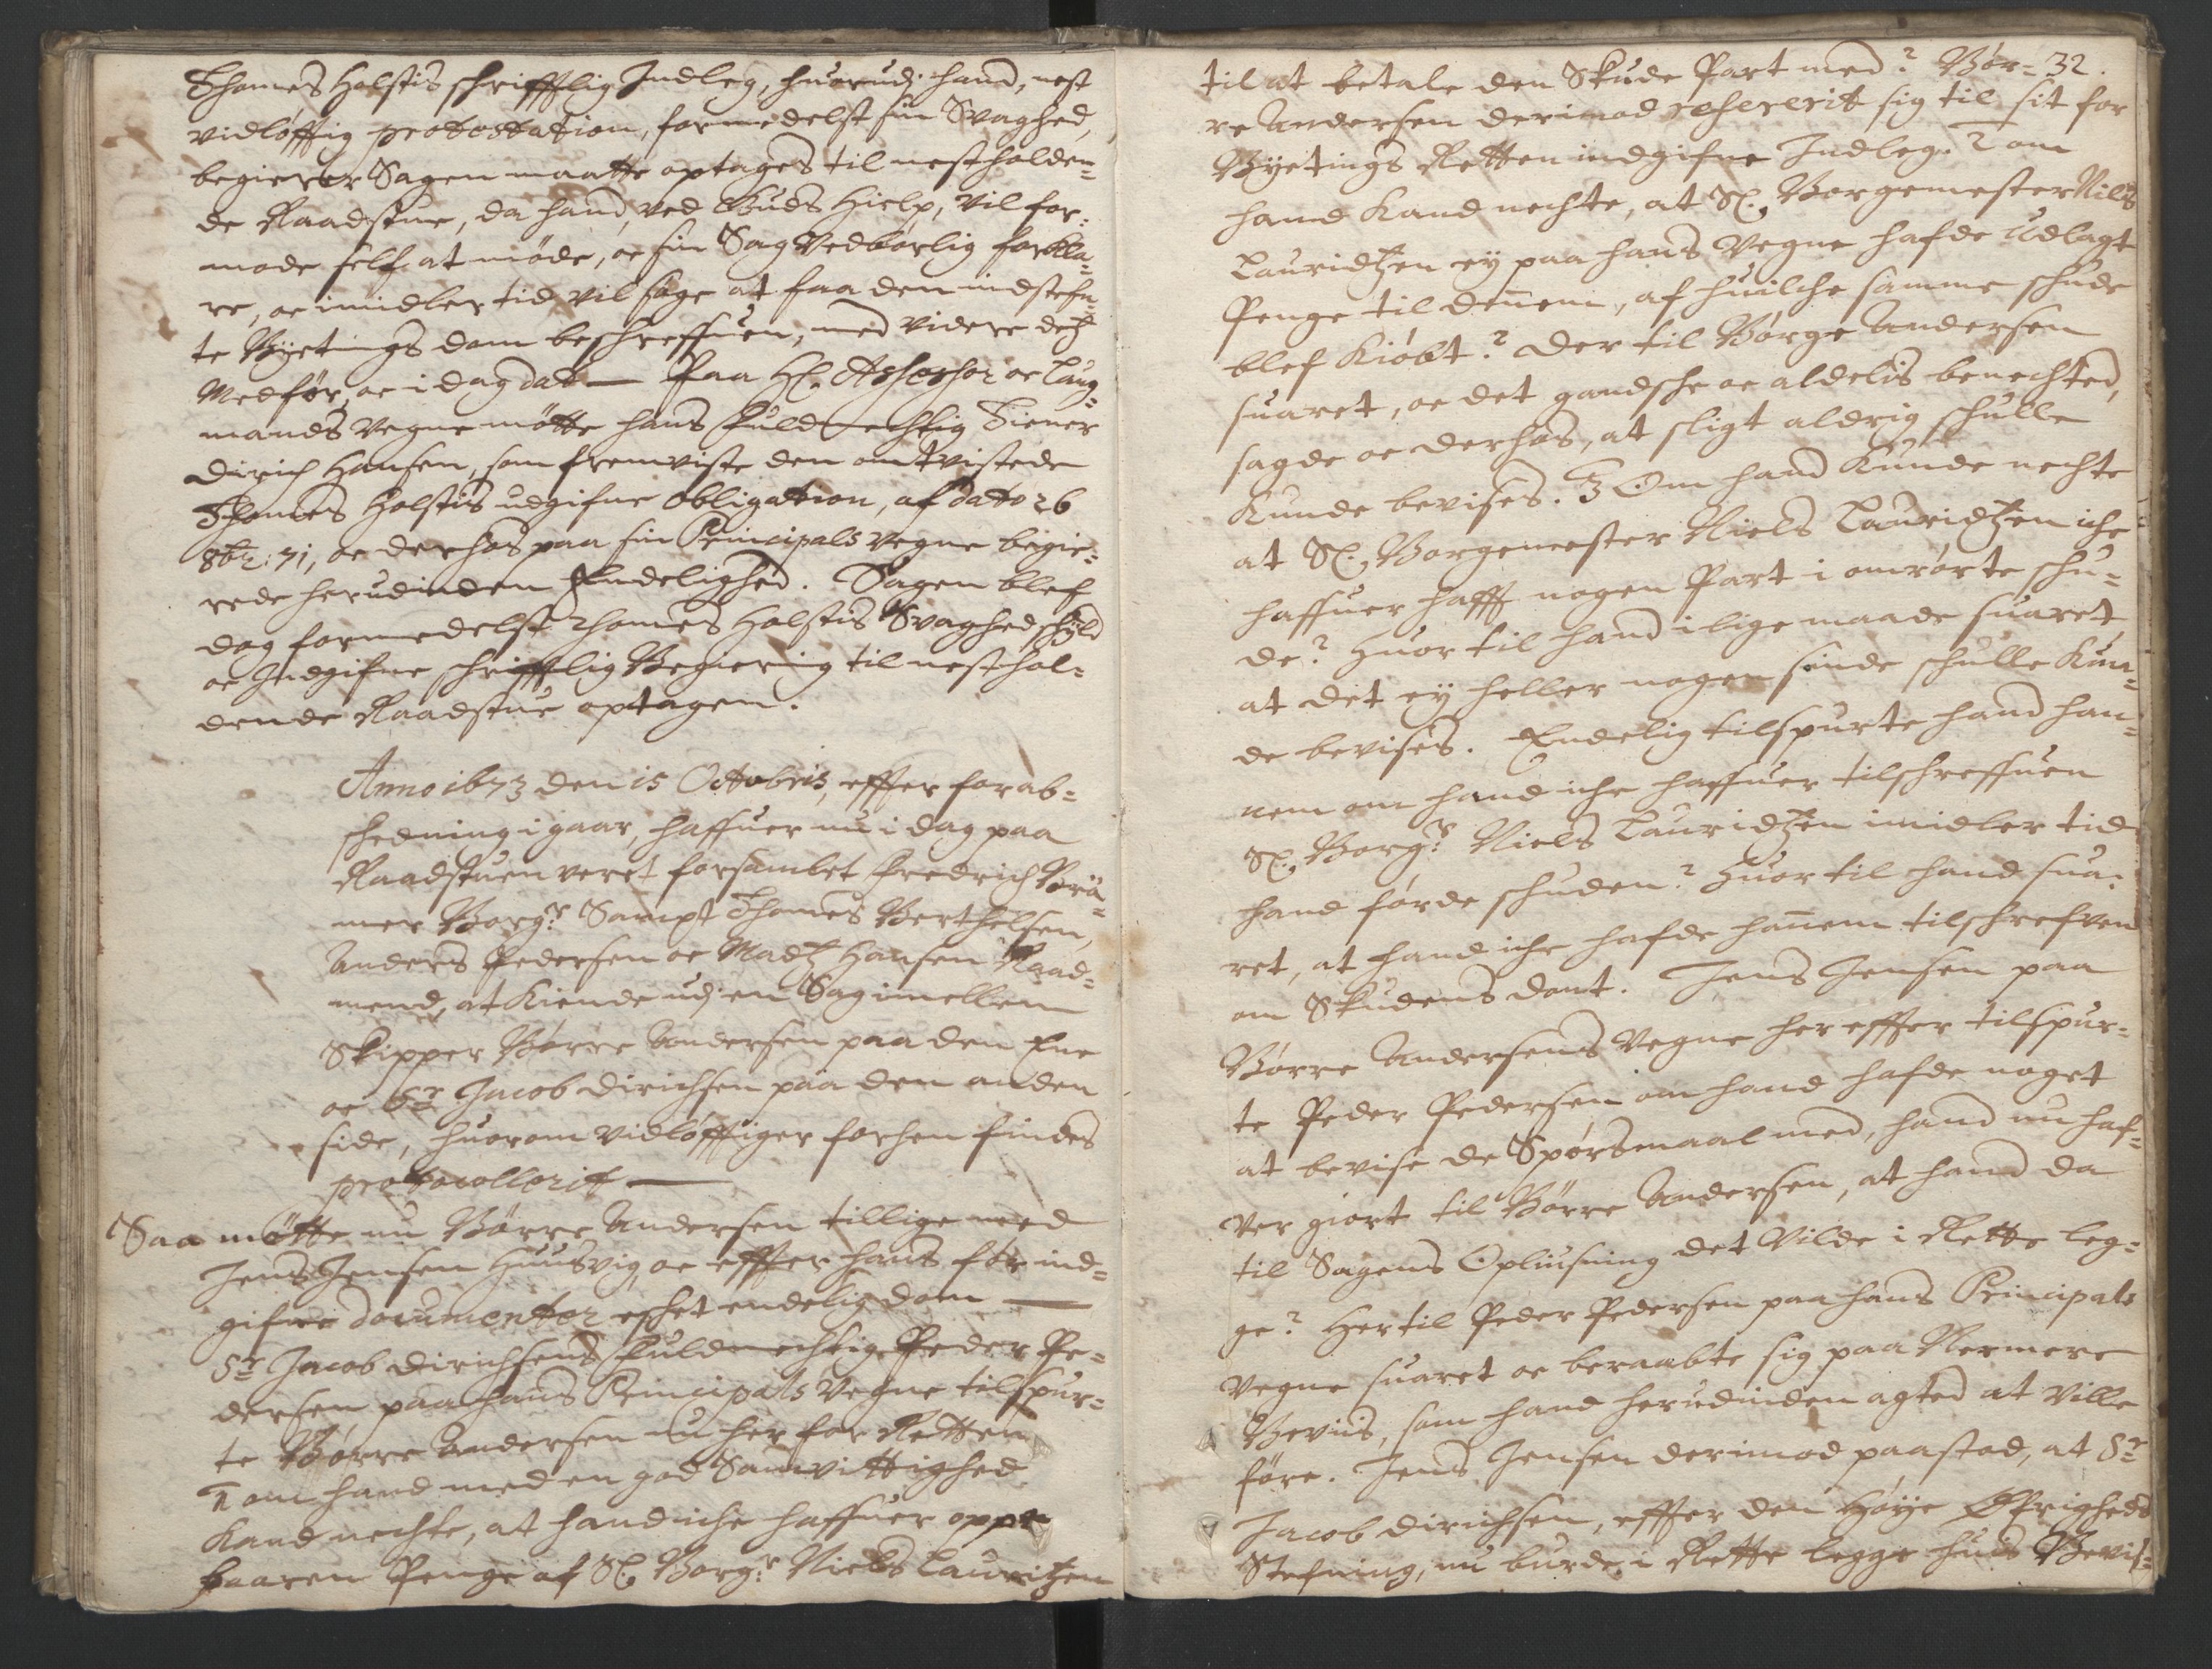 Thomes Holstis schrifftlig Indleg, huorudj hand, nest
vidløfftig protestation, formedelst sin Svaghed,
begierer Sagen maatte optages til nestholden¬
de Raadstue, da hand, ved Guds Hielp, vil for¬
mode self at møde, oc sin Sag vedbørlig forkla¬
re, oc imidler tid vil søge at faa den indstefn¬
te Byetings dom beschreffuen, med videre detz
Medfør, oc i dag dat — Paa Hl. Assessor oc Laug¬
mands Vegne møtte hans Fuldmechtig Tiener
Dirich Hansen, som fremviste den omtvistede
Thomes Holstis udgifne obligation, af dato 26
8br: 71, oc derhos paa sin Principals vegne begie¬
rede herudinden Endelighed. Sagen blef
dog formedelst Thomes Holstis Svaghed schyld
oc Indgifne schrifftlig Begiering til nesthol¬
dende Raadstue optagen.
Anno 1673 den 15 Octobris, effter forab¬
schedning i gaar, haffuer nu i dag paa
Raadstuen veret forsamblet Fredrich Brø¬
mer Borgr. Sampt Thomes Berthelsen,
Anders Pedersen oc Madtz Hansen Raad¬
mend, at Kiende udj en Sag imellem
Skipper Børre Andersen paa den Ene
oc Sr. Jacob Dirichsen paa den anden
side, huorom vidløfftiger forhen findes
protocollerit —
Saa møtte nu Børre Andersen tillige med
Jens Jensen Huusvig, oc effter hans før ind¬
gifne documenter eschet endelig dom —
Sr Jacob Dirichsens Fuldmechtig Peder Pe¬
dersen paa hans Principals Vegne tilspur¬
te Børre Andersen nu her for Retten
1 om hand med en god Samvittighed
Kand nechte, at hand iche haffuer oppe
baaren Penge af Sl. Borgr. Niels Lauritzen
32.
til at betale den Skude Part med? Bør¬
re Andersen derimod refererit sig til sit for
Byetings Retten indgifne Indleg. 2 om
hand Kand nechte, at Sl. Borgemester Niels
Lauridtzen ey paa hans Vegne hafde udlagt
Penge til dennem, af huilche samme schude
blef Kiøbt? Der til Børge Andersen
suaret, oc det gandsche oc aldelis benechted,
sagde oc derhos, at sligt aldrig schulle
Kunde bevises. 3 Om hand Kunde nechte
at Sl. Borgemester Niels Lauridtzen iche
haffuer hafft nogen Part i omrørte schu¬
de? Huor til hand i lige maade suaret,
at det ey heller nogen sinde schulle Kun¬
de bevises. Endelig tilspurte hand han¬
nem om hand iche haffuer tilschreffuen
Sl. Borgr. Niels Lauridtzen imidler tid
hand førde schuden? Huor til hand sua¬
ret, at hand iche hafde hannem tilschrefven
om Skudens dont. Jens Jensen paa
Børre Andersens Vegne her effter tilspur¬
te Peder Pedersen om hand hafde noget
at bevise de Spørsmaal med, hand nu haf¬
ver giort til Børre Andersen, at hand da
til Sagens Opliusning det Vilde i Rette leg¬
ge? Hertil Peder Pedersen paa hans Principals
Vegne suaret oc beraabte sig paa Nermere
Beviis, som hand herudinden agted at Ville
føre. Jens Jensen derimod paastod, at Sr.
Jacob Dirichsen, effter den Høye Øfrigheds
Stefning, nu burde i Rette legge hues Bevis¬